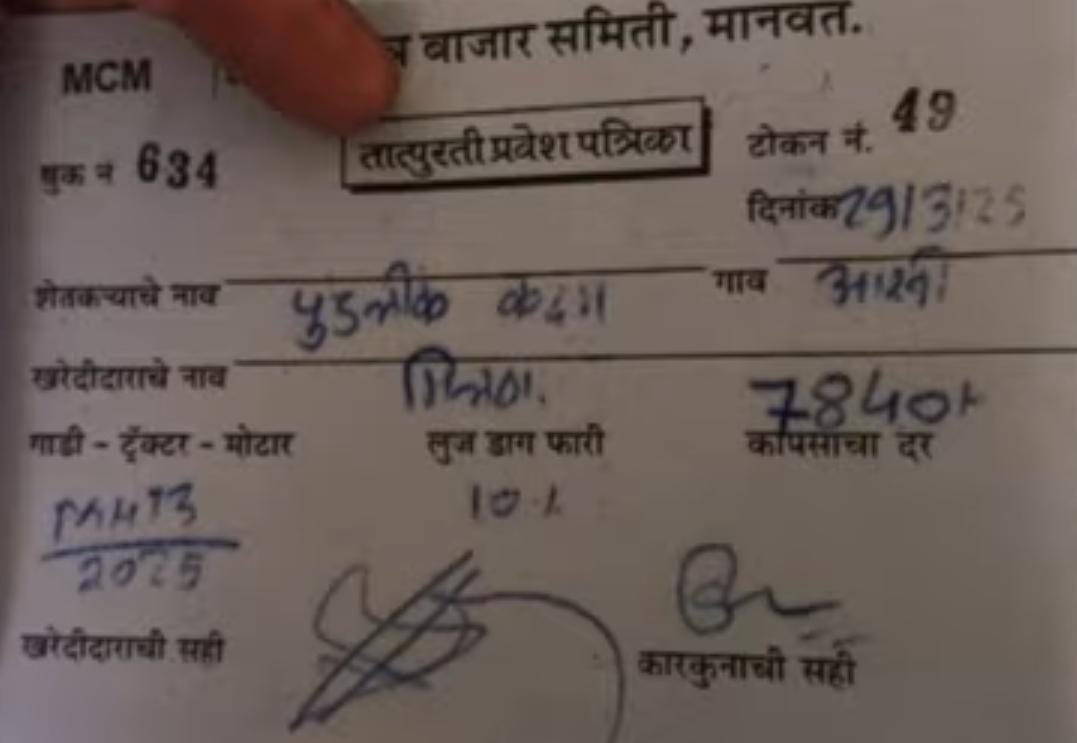 बाजार समिती, मानवत.
MCM
तात्पुरती प्रवेश पत्रिका
टोकन नं. 49
बुक नं 634
दिनांक 29/3/25
शेतकऱ्याचे नाव पुंडलीक कदम गाव
खरेदीदाराचे नाव
7840/-
गाडी - ट्रॅक्टर - मोटार लुज डाग फारी कापसाचा दर
10%
2025
खरेदीदाराची सही कारकुनाची सही